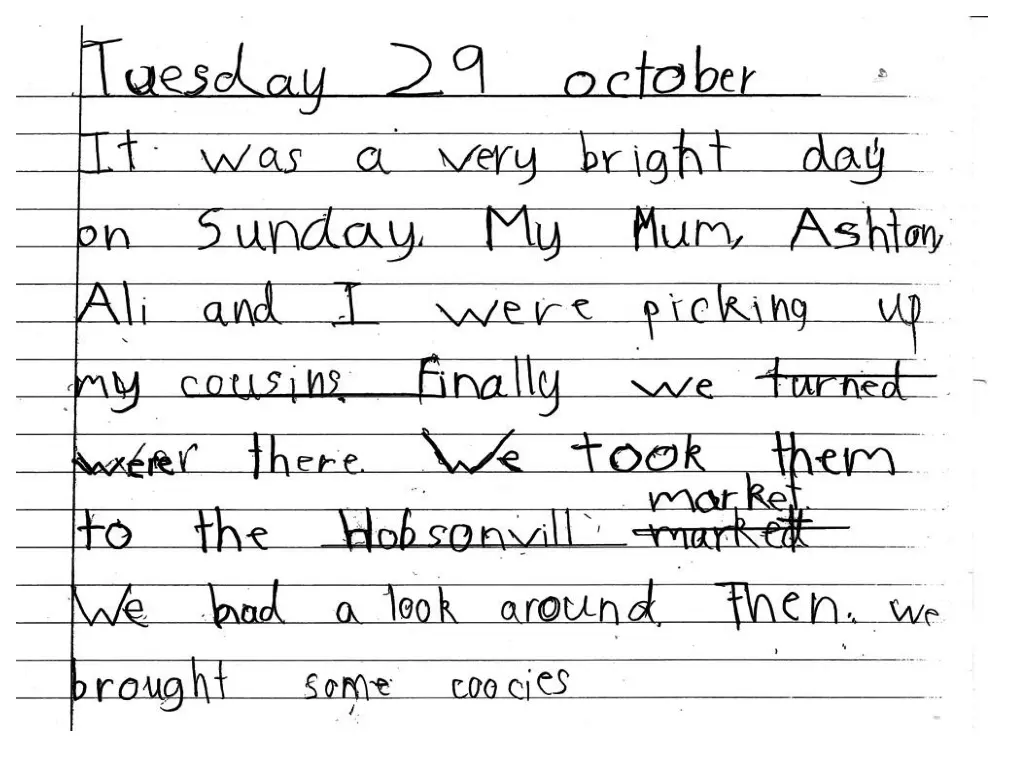 Tuesday 29 october
It was a very bright day
on Sunday. My Mum, Ashton,
Ali and I were picking up
my cousins. Finally we turned
were there. We took them
market.
to the Hobsonvill market
We had a look around. Then. we
brought some coocies